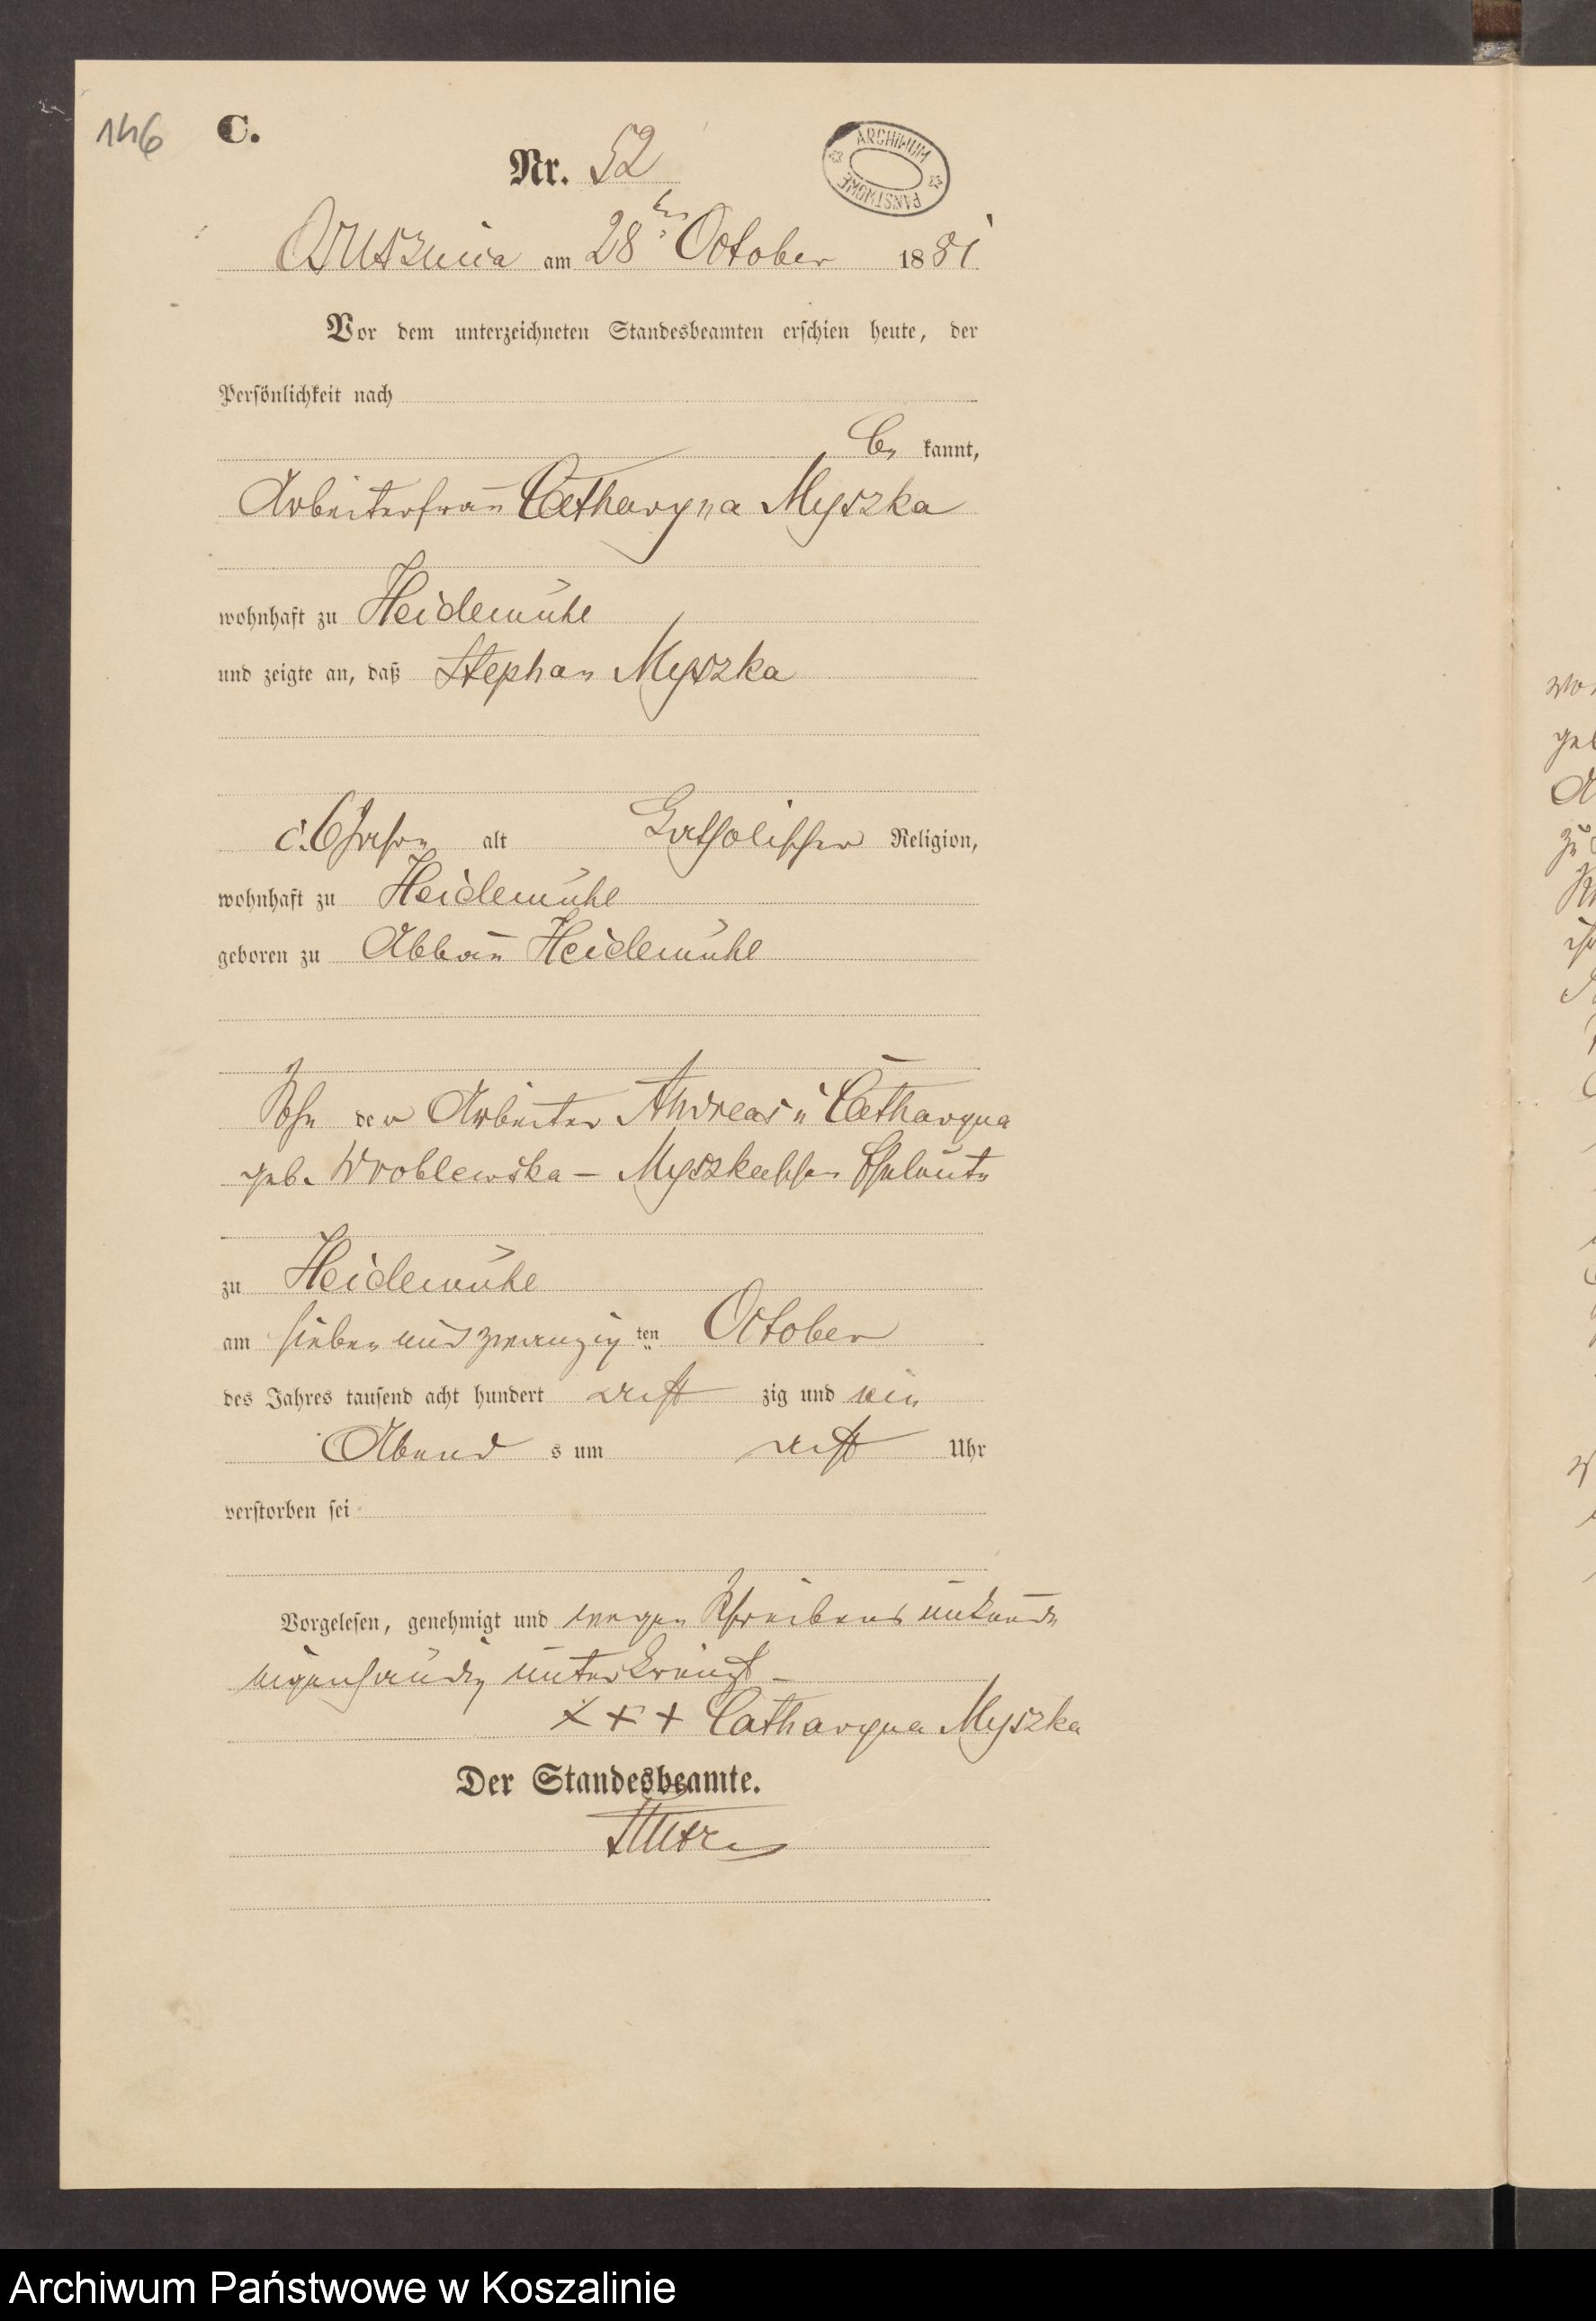 146
C.
Nr. 52
ARCHIWUM PAŃSTWOWE
am 28ten October 1881
Vor dem unterzeichneten Standesbeamten erschien heute, der
Persönlichkeit nach
be kannt,
Arbeiterfrau Catharyna Myszka
wohnhaft zu Heidemühl
und zeigte an, daß Stephan Myszka
6 Jahre alt Katholischer Religion,
wohnhaft zu Heidemühl
geboren zu Abbau Heidemühl
Sohn der Arbeiter Andreas u Catharyna
geb. Wroblewska – Myszkaschen Eheleute
zu Heidemühl
am sieben und zwanzig ten October
des Jahres tausend acht hundert acht zig und ein
Abend s um acht Uhr
verstorben sei
Vorgelesen, genehmigt und wegen Schreibens unkunde
eigenhändig unterkreuzt –
x x x Catharyna Myszka
Der Standesbeamte.
Archiwum Państwowe w Koszalinie